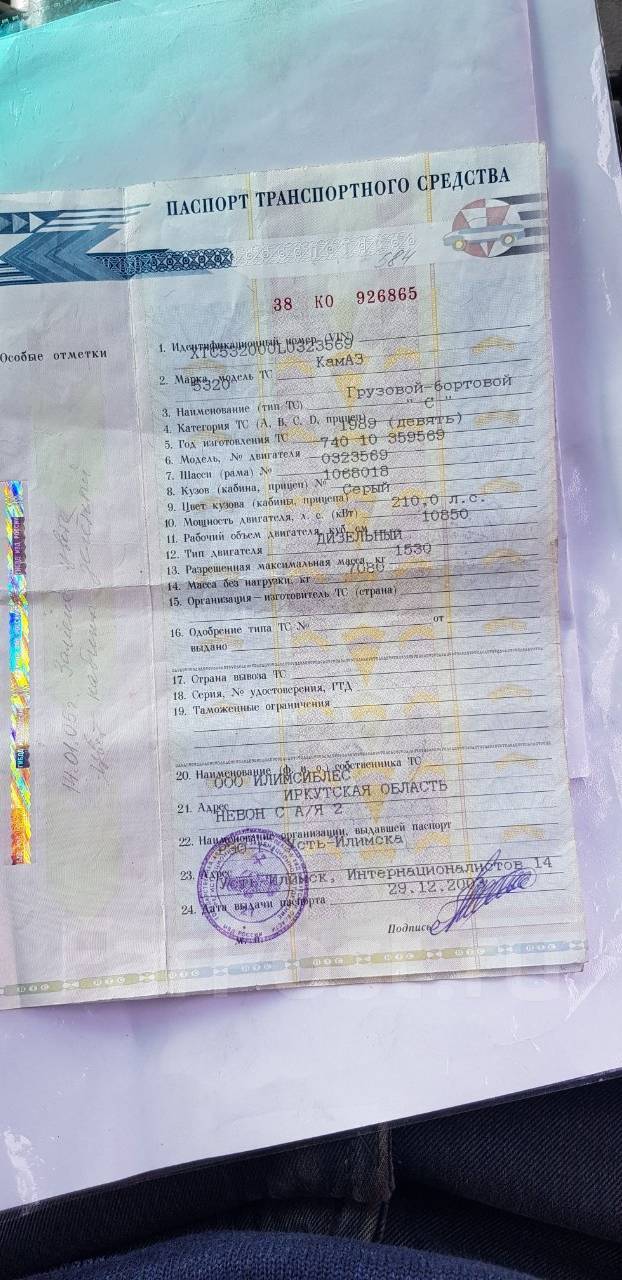 ПАСПОРТ ТРАНСПОРТНОГО СРЕДСТВА
584
38 КО 926865
Особые отметки
1. Идентификационный номер (VIN)
XTC532000L0323569
2. Марка, модель ТС КамАЗ
5320
3. Наименование (тип ТС) Грузовой-бортовой
4. Категория ТС (A, B, C, D, прицеп) "С"
5. Год изготовления ТС 1989 (девять)
6. Модель, № двигателя 740 10 359569
7. Шасси (рама) № 0323569
8. Кузов (кабина, прицеп) № 1068018
9. Цвет кузова (кабины, прицепа) Серый
10. Мощность двигателя, л. с. (кВт) 210,0 л.с.
11. Рабочий объем двигателя, куб. см 10850
12. Тип двигателя ДИЗЕЛЬНЫЙ
13. Разрешенная максимальная масса, кг 1530
14. Масса без нагрузки, кг 7080
15. Организация-изготовитель ТС (страна)
16. Одобрение типа ТС № от
выдано
17. Страна вывоза ТС
18. Серия, № удостоверения, ГТД
19. Таможенные ограничения
20. Наименование (ф. и. о.) собственника ТС
ООО ИЛИМСИБЛЕС
21. Адрес ИРКУТСКАЯ ОБЛАСТЬ
НЕВОН С А/Я 2
22. Наименование организации, выдавшей паспорт
Усть-Илимска
23. Адрес
Усть-Илимск, Интернационалистов 14
24. Дата выдачи паспорта 29.12.200
М. П.
Подпись
14.01.05г
ПТС ПТС ПТС ПТС ПТС